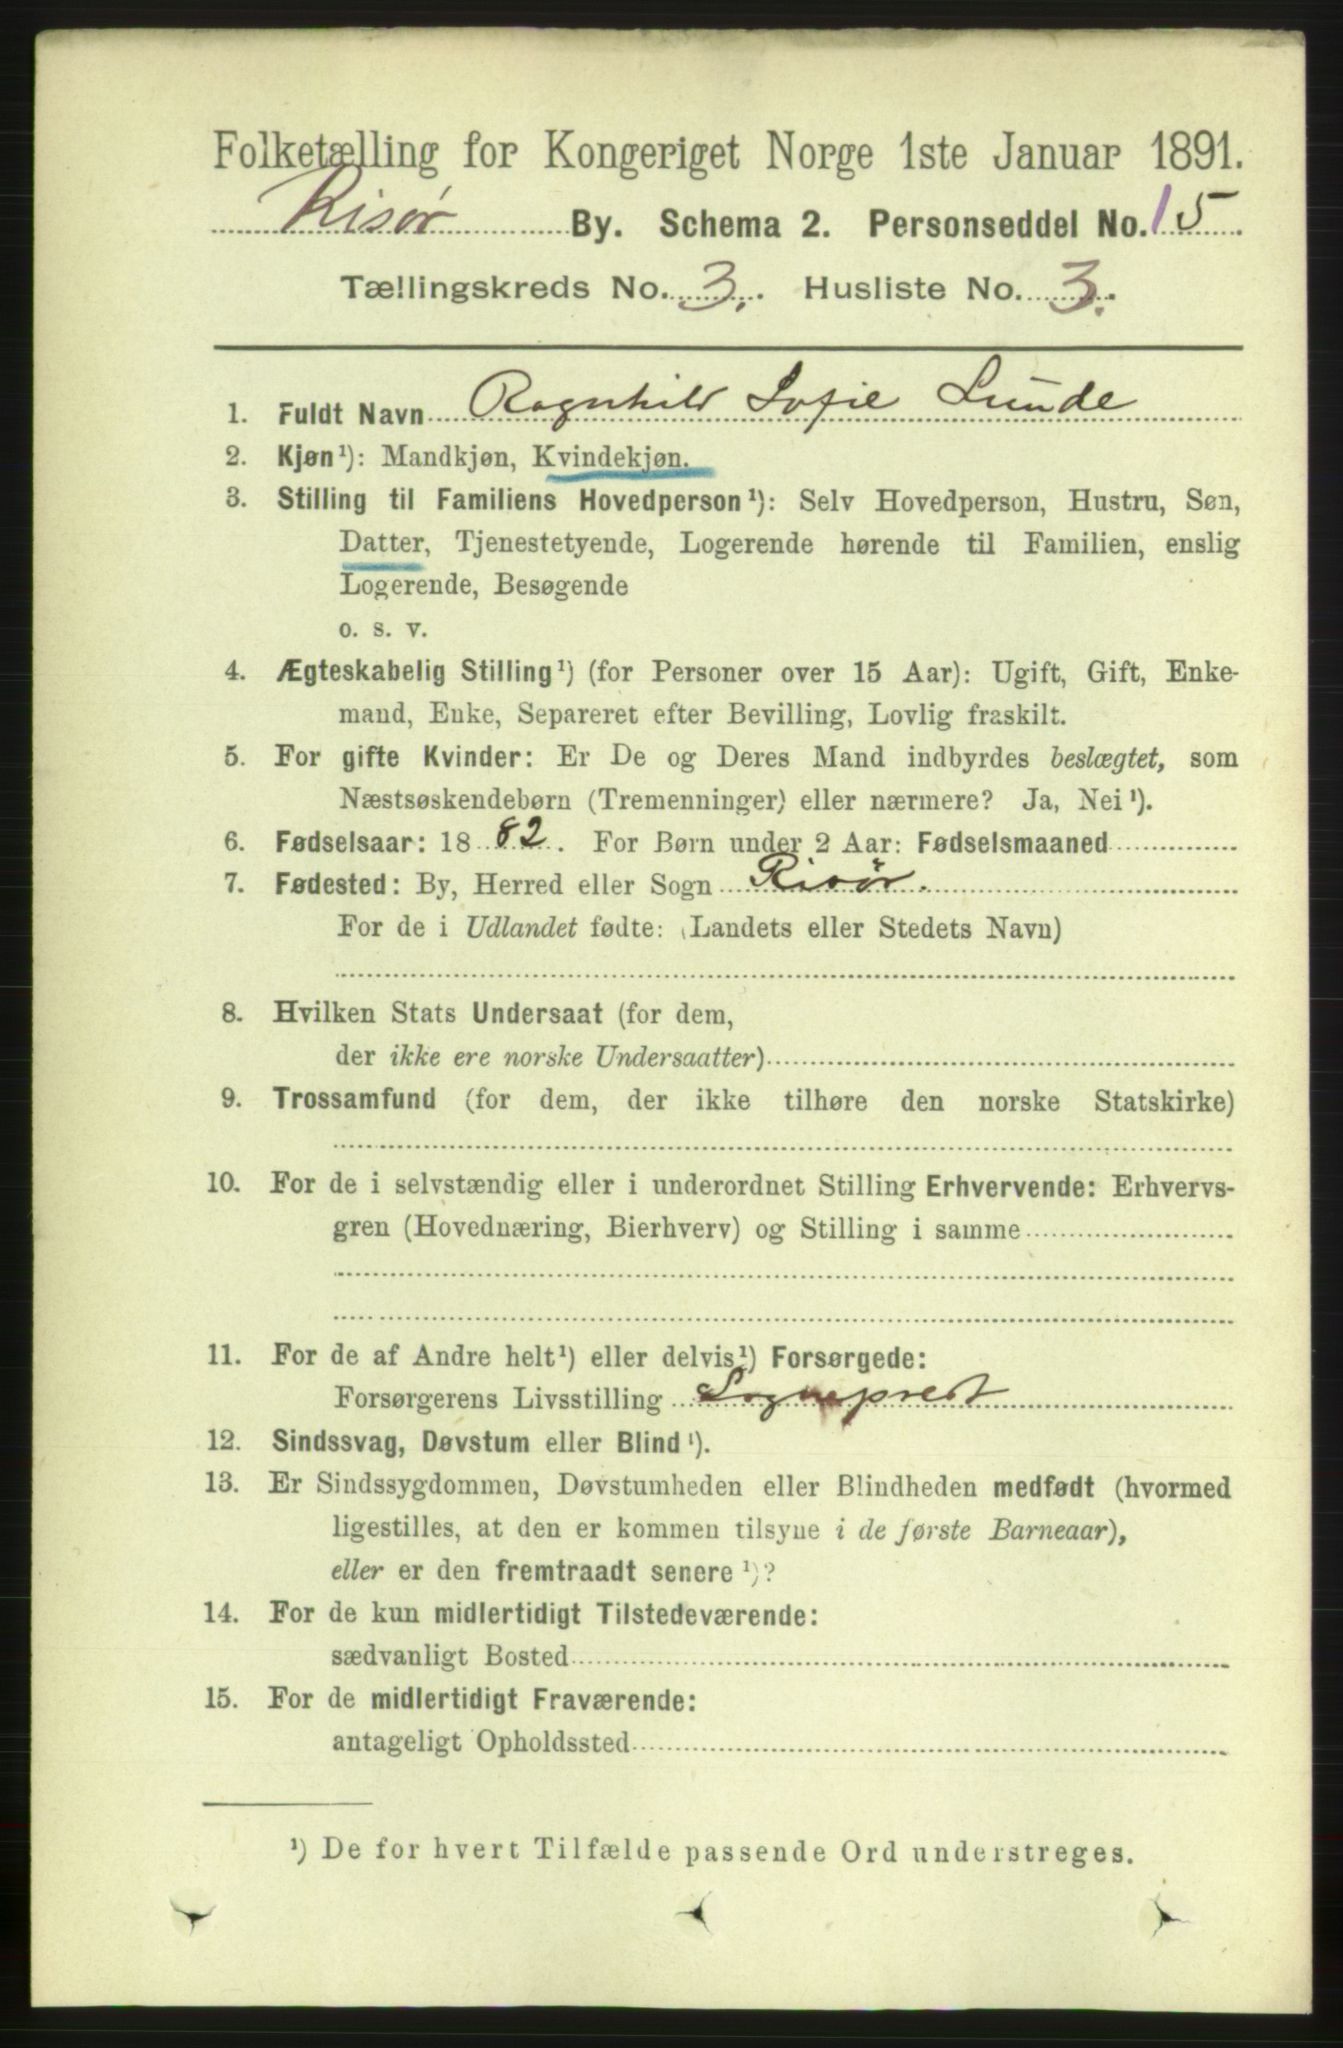 Folketælling for Kongeriget Norge 1ste Januar 1891.
Risør By. Schema 2. Personseddel No. 15
Tællingskreds No. 3. Husliste No. 3.
1. Fuldt Navn Ragnhild Sofie Lunde
2. Kjøn¹): Mandkjøn, Kvindekjøn.
3. Stilling til Familiens Hovedperson¹): Selv Hovedperson, Hustru, Søn,
Datter, Tjenestetyende, Logerende hørende til Familien, enslig
Logerende, Besøgende
o. s. v.
4. Ægteskabelig Stilling¹) (for Personer over 15 Aar): Ugift, Gift, Enke-
mand, Enke, Separeret efter Bevilling, Lovlig fraskilt.
5. For gifte Kvinder: Er De og Deres Mand indbyrdes beslægtet, som
Næstsøskendebørn (Tremenninger) eller nærmere? Ja, Nei¹).
6. Fødselsaar: 1882. For Børn under 2 Aar: Fødselsmaaned
7. Fødested: By, Herred eller Sogn Risør.
For de i Udlandet fødte: (Landets eller Stedets Navn)
8. Hvilken Stats Undersaat (for dem,
der ikke ere norske Undersaatter)
9. Trossamfund (for dem, der ikke tilhøre den norske Statskirke)
10. For de i selvstændig eller i underordnet Stilling Erhvervende: Erhvervs-
gren (Hovednæring, Bierhverv) og Stilling i samme
11. For de af Andre helt¹) eller delvis¹) Forsørgede:
Forsørgerens Livsstilling Sogneprest
12. Sindssvag, Døvstum eller Blind¹).
13. Er Sindssygdommen, Døvstumheden eller Blindheden medfødt (hvormed
ligestilles, at den er kommen tilsyne i de første Barneaar),
eller er den fremtraadt senere¹)?
14. For de kun midlertidigt Tilstedeværende:
sædvanligt Bosted
15. For de midlertidigt Fraværende:
antageligt Opholdssted
¹) De for hvert Tilfælde passende Ord understreges.